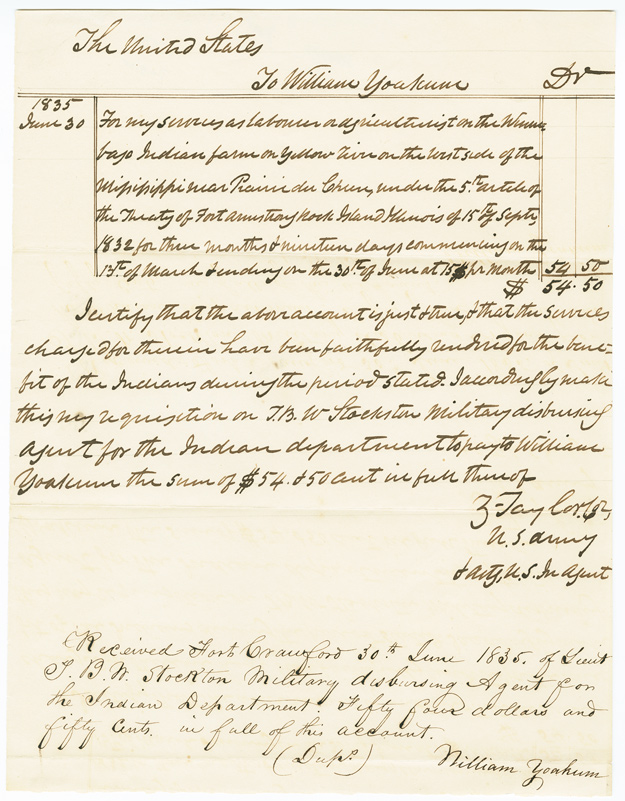 The United States
To William Yoakum Dr
1835
June 30 For my services as labourer or agriculturist on the Winne-
bago Indian farm on Yellow river on the west side of the
Mississippi near Prairie du Chien, under the 5th article of
the Treaty of Fort Armstrong Rock Island Illinois of 15th of Septr,
1832 for three months & nineteen days commencing on the
13th of March & ending on the 30th of June at 15$ pr month 54 50
$ 54.50
I certify that the above account is just & true, & that the services
charged for therein have been faithfully rendered for the bene-
fit of the Indians during the period stated. I accordingly make
this my requisition on J.B.W Stockton Military disbursing
Agent for the Indian department to pay to William
Yoakum the sum of $54. & 50 cent in full thereof
Z. Taylor. Col,
U.S. army
& actg, U.S. In Agent
Received Fort Crawford 30th June 1835. of Lieut
J. B. W. Stockton Military disbursing Agent for
the Indian Department, Fifty four dollars and
fifty Cents. in full of this account.
(Dupe.) William Yoakum